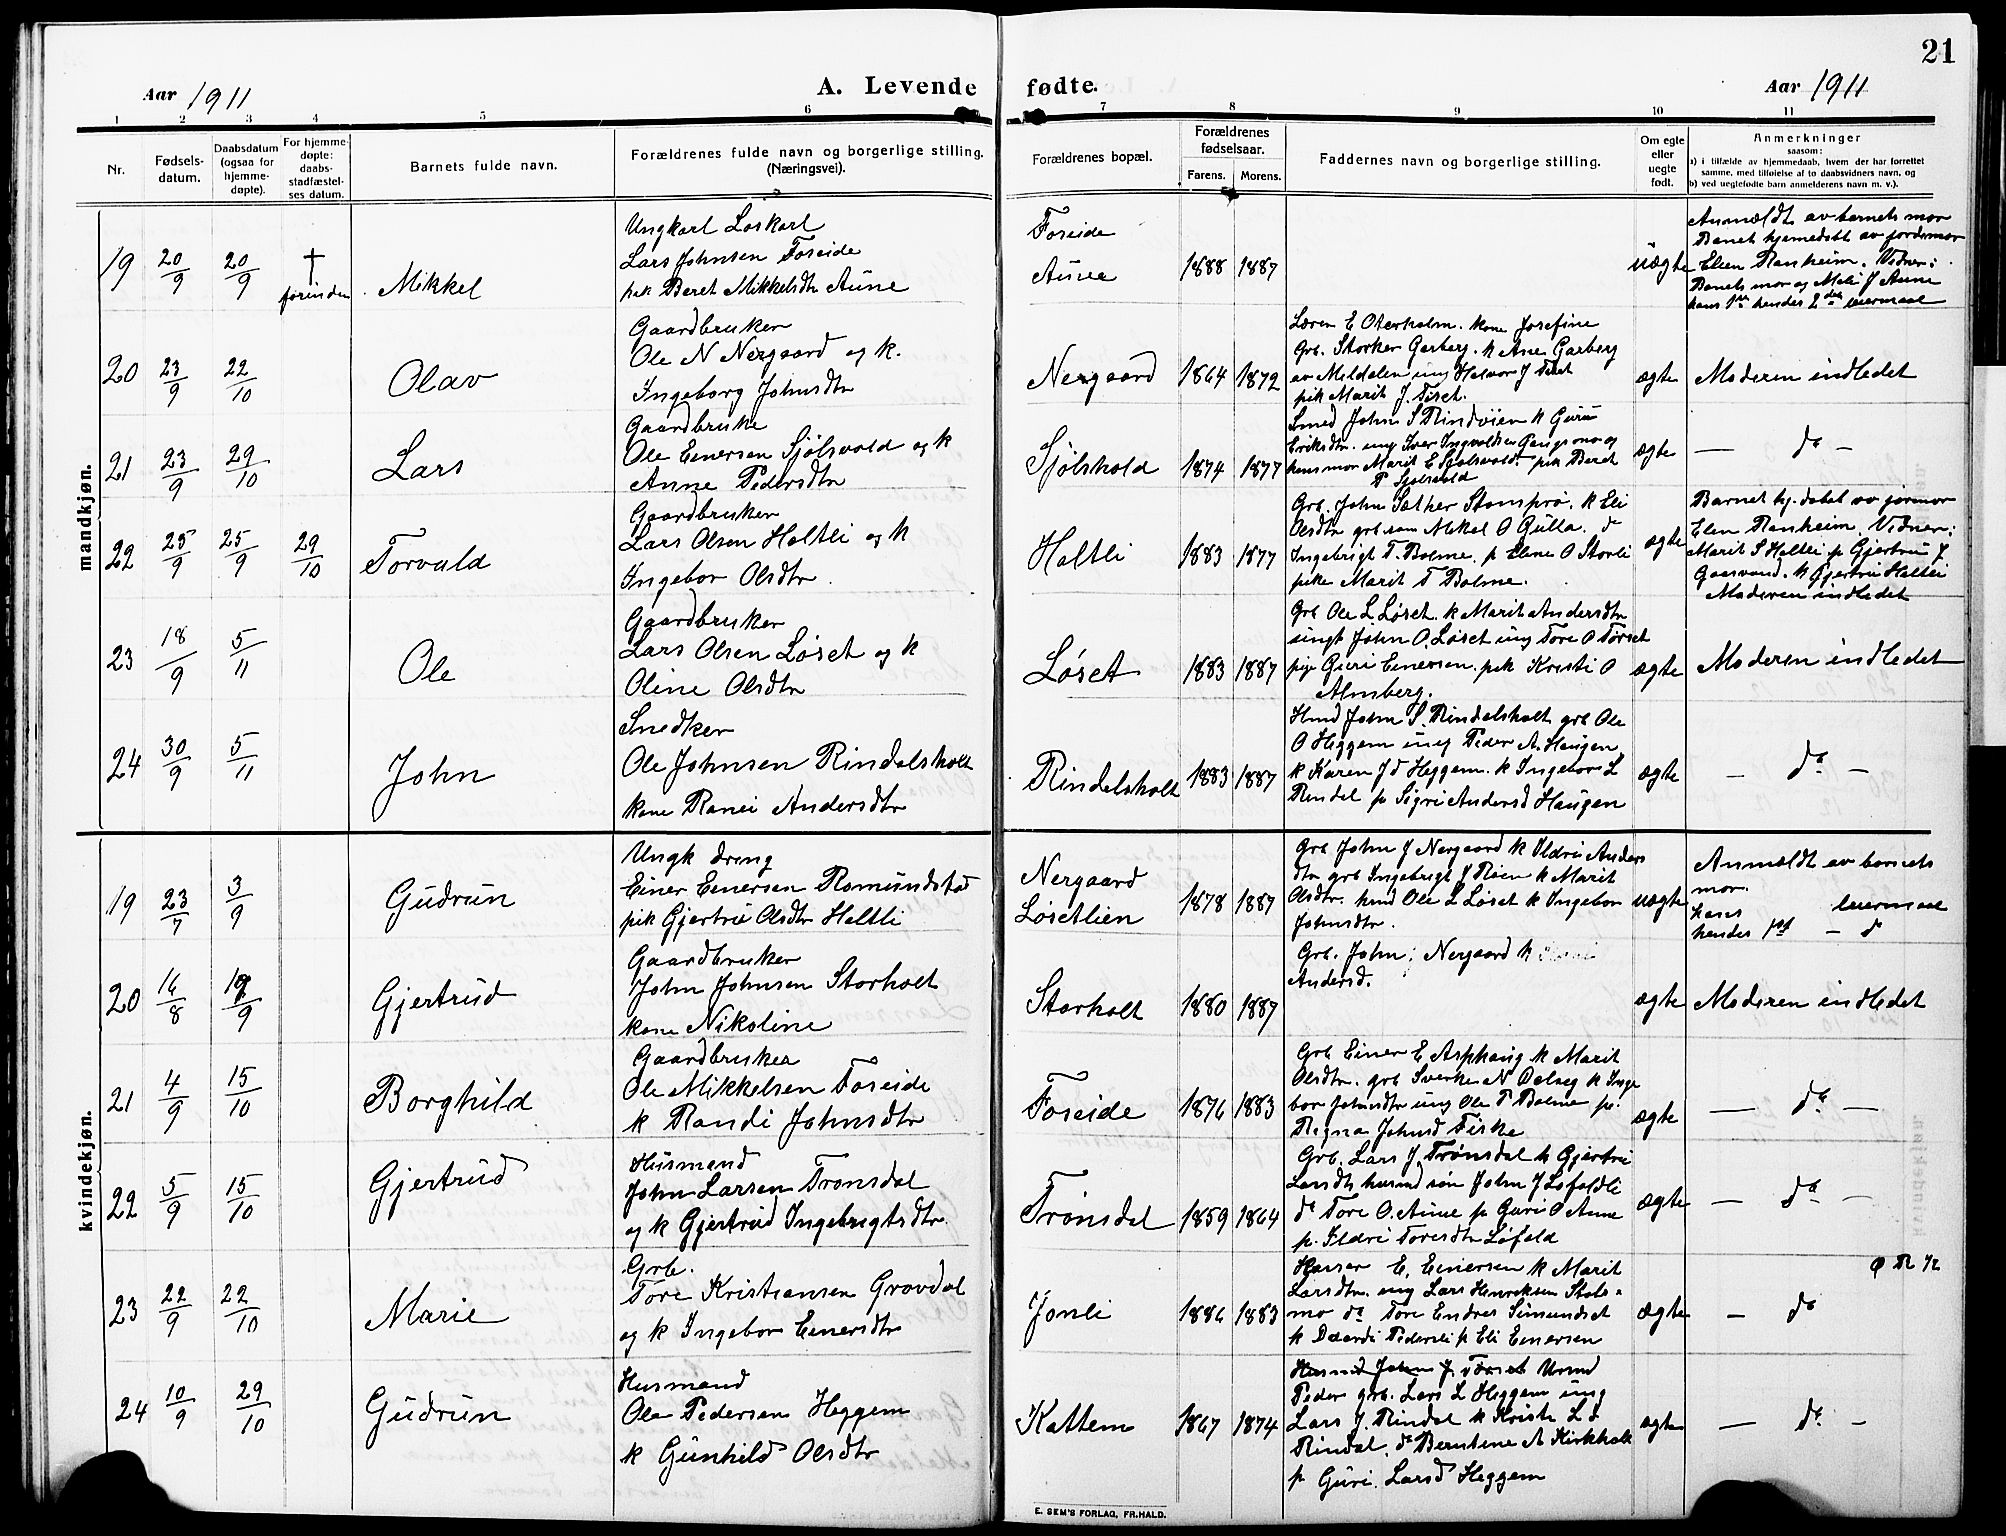 21
Aar 1911
A. Levende fødte.
Aar 1911
1 2 3 4 5 6 7 8 9 10 11
Nr.
Fødsels-
datum.
Daabsdatum
(ogsaa for
hjemme-
døpte).
For hjemme-
døpte:
daabs-
stadfæstel-
ses datum.
Barnets fulde navn.
Forældrenes fulde navn og borgerlige stilling.
(Næringsvei).
Forældrenes bopæl.
Forældrenes
fødselsaar.
Farens. Morens.
Faddernes navn og borgerlige stilling.
Om egte
eller
uegte
født.
Anmerkninger
saasom:
a) i tilfælde av hjemmedaab, hvem der har forrettet
samme, med tilføielse af to daabsvidners navn, og
b) ved uegtefødte barn anmelderens navn m. v.).
mandkjøn.
19 20/9 20/9 † forinden Mikkel
Ungkarl Løskarl
Lars Johnsen Foseide
pik Beret Mikkelsdtr Aune
Foseide
Aune
1888 1887
uægte
Anmældt av barnets mor
Barnet hjemedøbt av jordemor
Elen Ranheim. Vidner:
Barnets mor og Meli J Aune
hans 1ste hendes 2det leiermaal
20 23/9 22/10 Olav
Gaardbruker
Ole N Nergaard og k.
Ingeborg Johnsdtr
Nergaard
1864 1872
Lærer E Oterholm. kone Josefine
Grb. Storker Garberg. k Ane Garberg
av Meldalen ung Halvor J Tiset
pik Marit J. Tiset.
ægte
Moderen indledet
21 23/9 29/10 Lars
Gaardbruke
Ole Einersen Sjølsvold og k
Anne Pedersdtr
Sjølshold
1874 1877
Smed John S Rindvoien k Guru
Eriksdtr. ung Iver Ingvoldsen Gangsmo og
hans mor Marit E Sjølsvold. pik Beret
P Sjølsvold
ægte
— do —
22 25/9 25/9 29/10 Torvald
Gaardbruker
Lars Olsen Holtli og k
Ingebor Olsdtr.
Holtli
1883 1877
Grb. John Sæther Stomprø. k Eli
Olsdtr grb søn Mikal O Gulla. do
Ingebrigt T. Bolme. p Eline O Storli
pike Marit T Bolme.
ægte
Barnet hj. døbt av jormor
Elen Ranheim. Vidner:
Marit S Holtli p Gjertru J
Gaasvand. k Gjertru Holtli
Moderen indledet
23 18/9 5/11 Ole
Gaardbruker
Lars Olsen Løset og k
Oline Olsdtr
Løset
1883 1887
Grb Ole L Løset. k Marit Andersdtr
ungk John O. Løset ung Tore O Torset
pige Guri Einersen. pik Kristi O
Almberg.
ægte
Moderen indledet
24 30/9 5/11 John
Snedker
Ole Johnsen Rindalsholt
kone Ranei Andersdtr
Rindelsholt
1883 1887
Husd John S. Rindalsholt grb Ole
O Heggem ung Peder A. Haugen
k Karen J d Heggem. k Ingebor L
Rindal p Sigri Andersd Haugen
ægte
— do —
kvindekjøn.
19 23/7 3/9 Gudrun
Ungk dreng
Einer Einersen Romundstad
pik Gjertru Olsdtr Holtli
Nergaard
Løsetlien
1878 1887
Grb John J Nergaard k Ildri Anders
dtr grb Ingebrigt J Røen k Marit
Olsdtr. husd Ole L Løset k Ingebor
Johnsdtr.
uægte
Anmældt av barnets
mor.
hans leiermaal
hendes 1st — d
20 14/8 17/9 Gjertrud
Gaardbruker
John Johnsen Storholt
kone Nikoline
Storholt
1880 1887
Grb. John Nergaard k
Andersd.
ægte
Moderen indledet
21 4/9 15/10 Borghild
Gaardbruker
Ole Mikkelsen Foseide
k Randi Johnsdtr
Foseide
1876 1883
Grb Einer E. Asphaug k Marit
Olsdtr. grb Sverke N Dalseg k Inge
bor Johnsdtr ung Ole T Bolme p.
Ragna Johnsd Fiske
ægte
— do —
22 5/9 15/10 Gjertrud
Husmand
John Larsen Tronsdal
og k Gjertrud Ingebrigtsdtr
Trønsdal
1859 1864
Grb. Lars J. Trønsdal k Gjertru
Larsdtr husmd søn John J Lofaldli
do Tore O. Aune p Guri O Aune
p. Ildri Toresdtr Løfald
ægte
— do —
23 22/9 22/10 Marie
Grb.
Tore Kristiansen Grovdal
og k Ingebor Einersdtr
Jonli
1886 1883
Husmr E. Einersen k Marit
Larsdtr. ung Lars Henriksen Stols-
mo do Tore Endres Simundset
k Daardi Pedersli p Eli Einersen
ægte
— do
24 10/9 29/10 Gudrun
Husmand
Ole Pedersen Heggem
k Gunhild Olsdtr
Kattem
1867 1874
Husmd John J. Torset Husmd
Peder grb. Lars L Heggem ung
Lars J. Rindal k Kristi L d
Rindal. do Berntine A Kirkholt
p Guri Larsd Heggem
ægte
— do —
E. SEM'S FORLAG, FR.HALD.